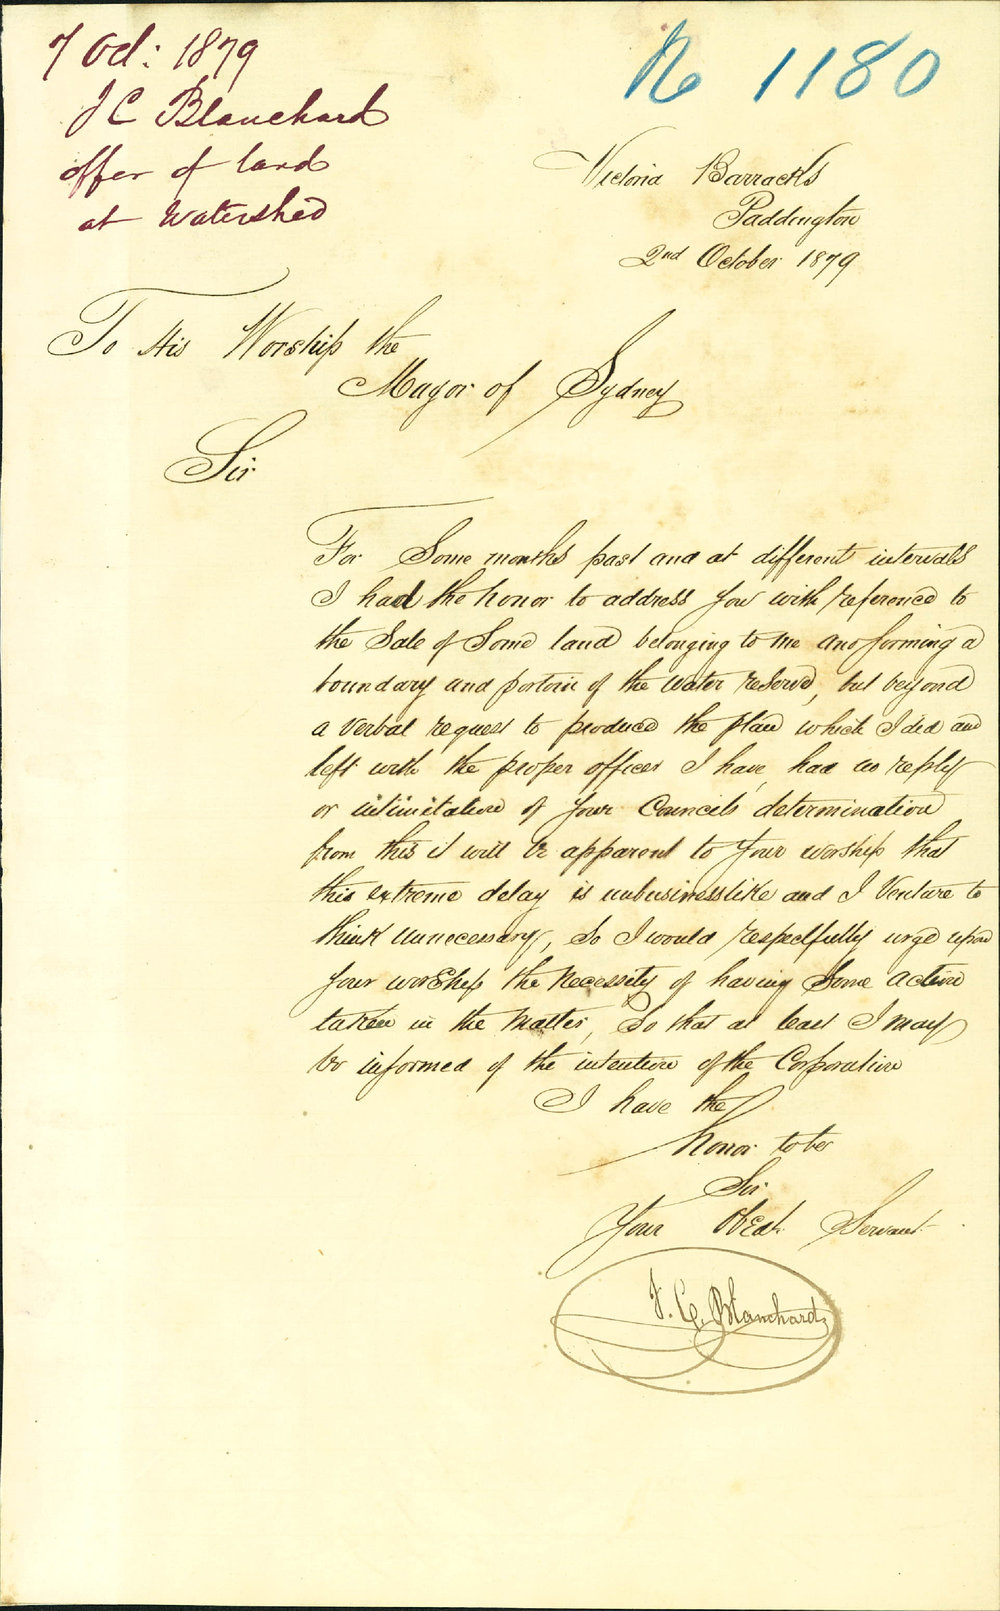 7 Oct: 1879
J C Blanchard
offer of land
at Watershed
No 1180
Victoria Barracks
Paddington
2nd October 1879
To His Worship the
Mayor of Sydney
Sir
For Some months past and at different intervals
I had the honor to address your with reference to
the Sale of Some land belonging to me and forming a
boundary and portion of the water reserve, but beyond
a verbal request to produce the plan which I did and
left with the proper officer I have had no reply
or intimitation of your Councils determination
from this it will be apparent to your worship that
this extreme delay is unbusinesslike and I Venture to
think unnecessary, So I would respectfully urge upon
your worship the necessity of having Some action
taken in the matter, So that at least I may
be informed of the intention of the Corporation
I have the
honor to be
Sir
Your Obedt Servant
J. C. Blanchard